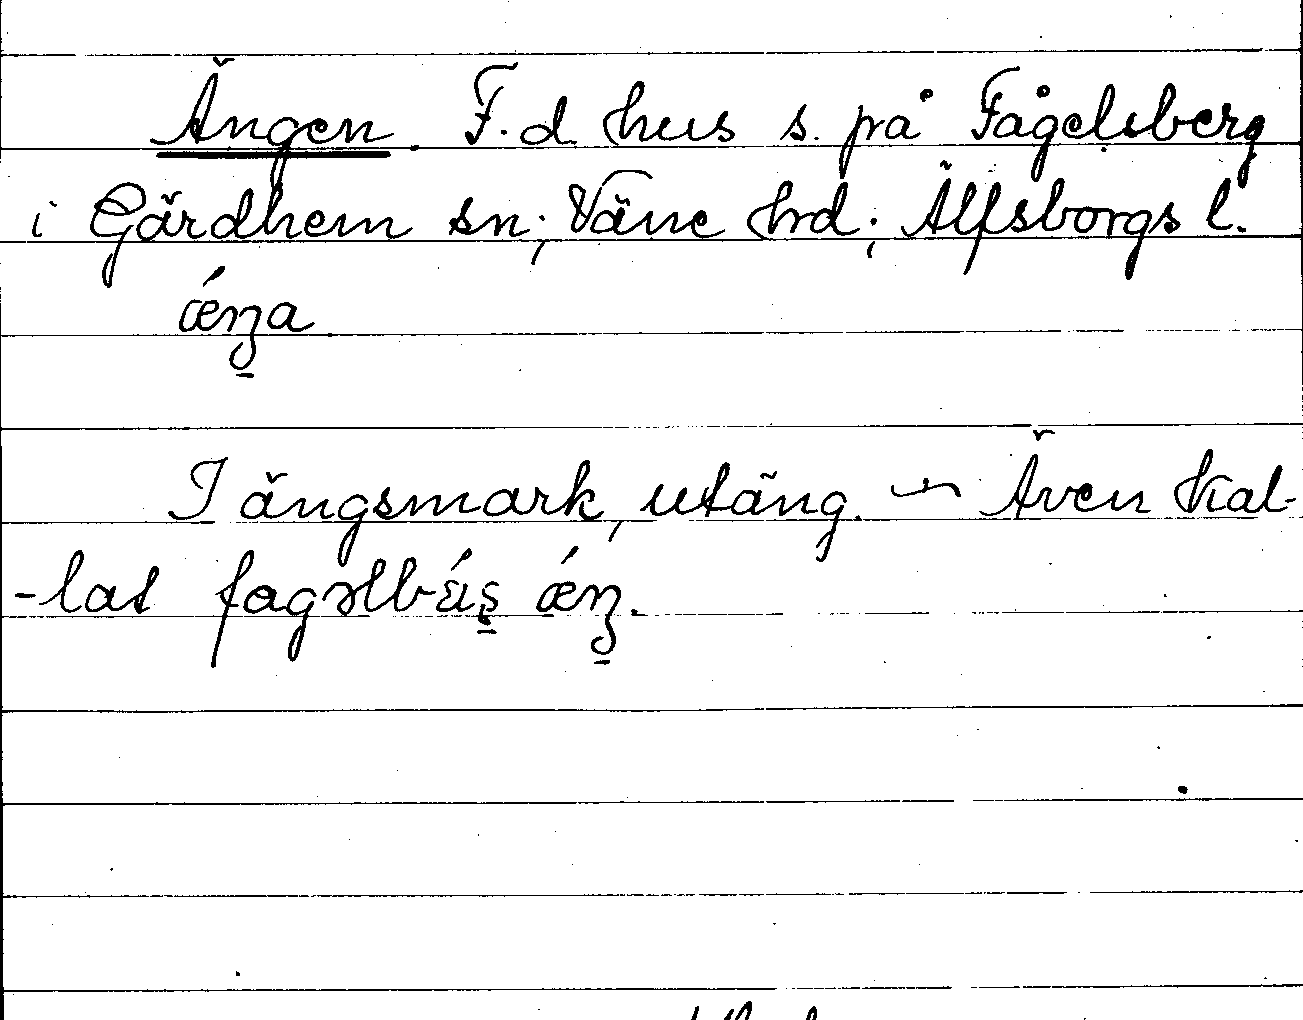 Ängen. F.d. hus s. på Fågelsberg
i Gärdhem sn; Väne hd; Älfsborgs l.
ǽŋa
I ängsmark, utäng. ~ Även kal-
-lat fagəlbǽʂ ǽŋ.